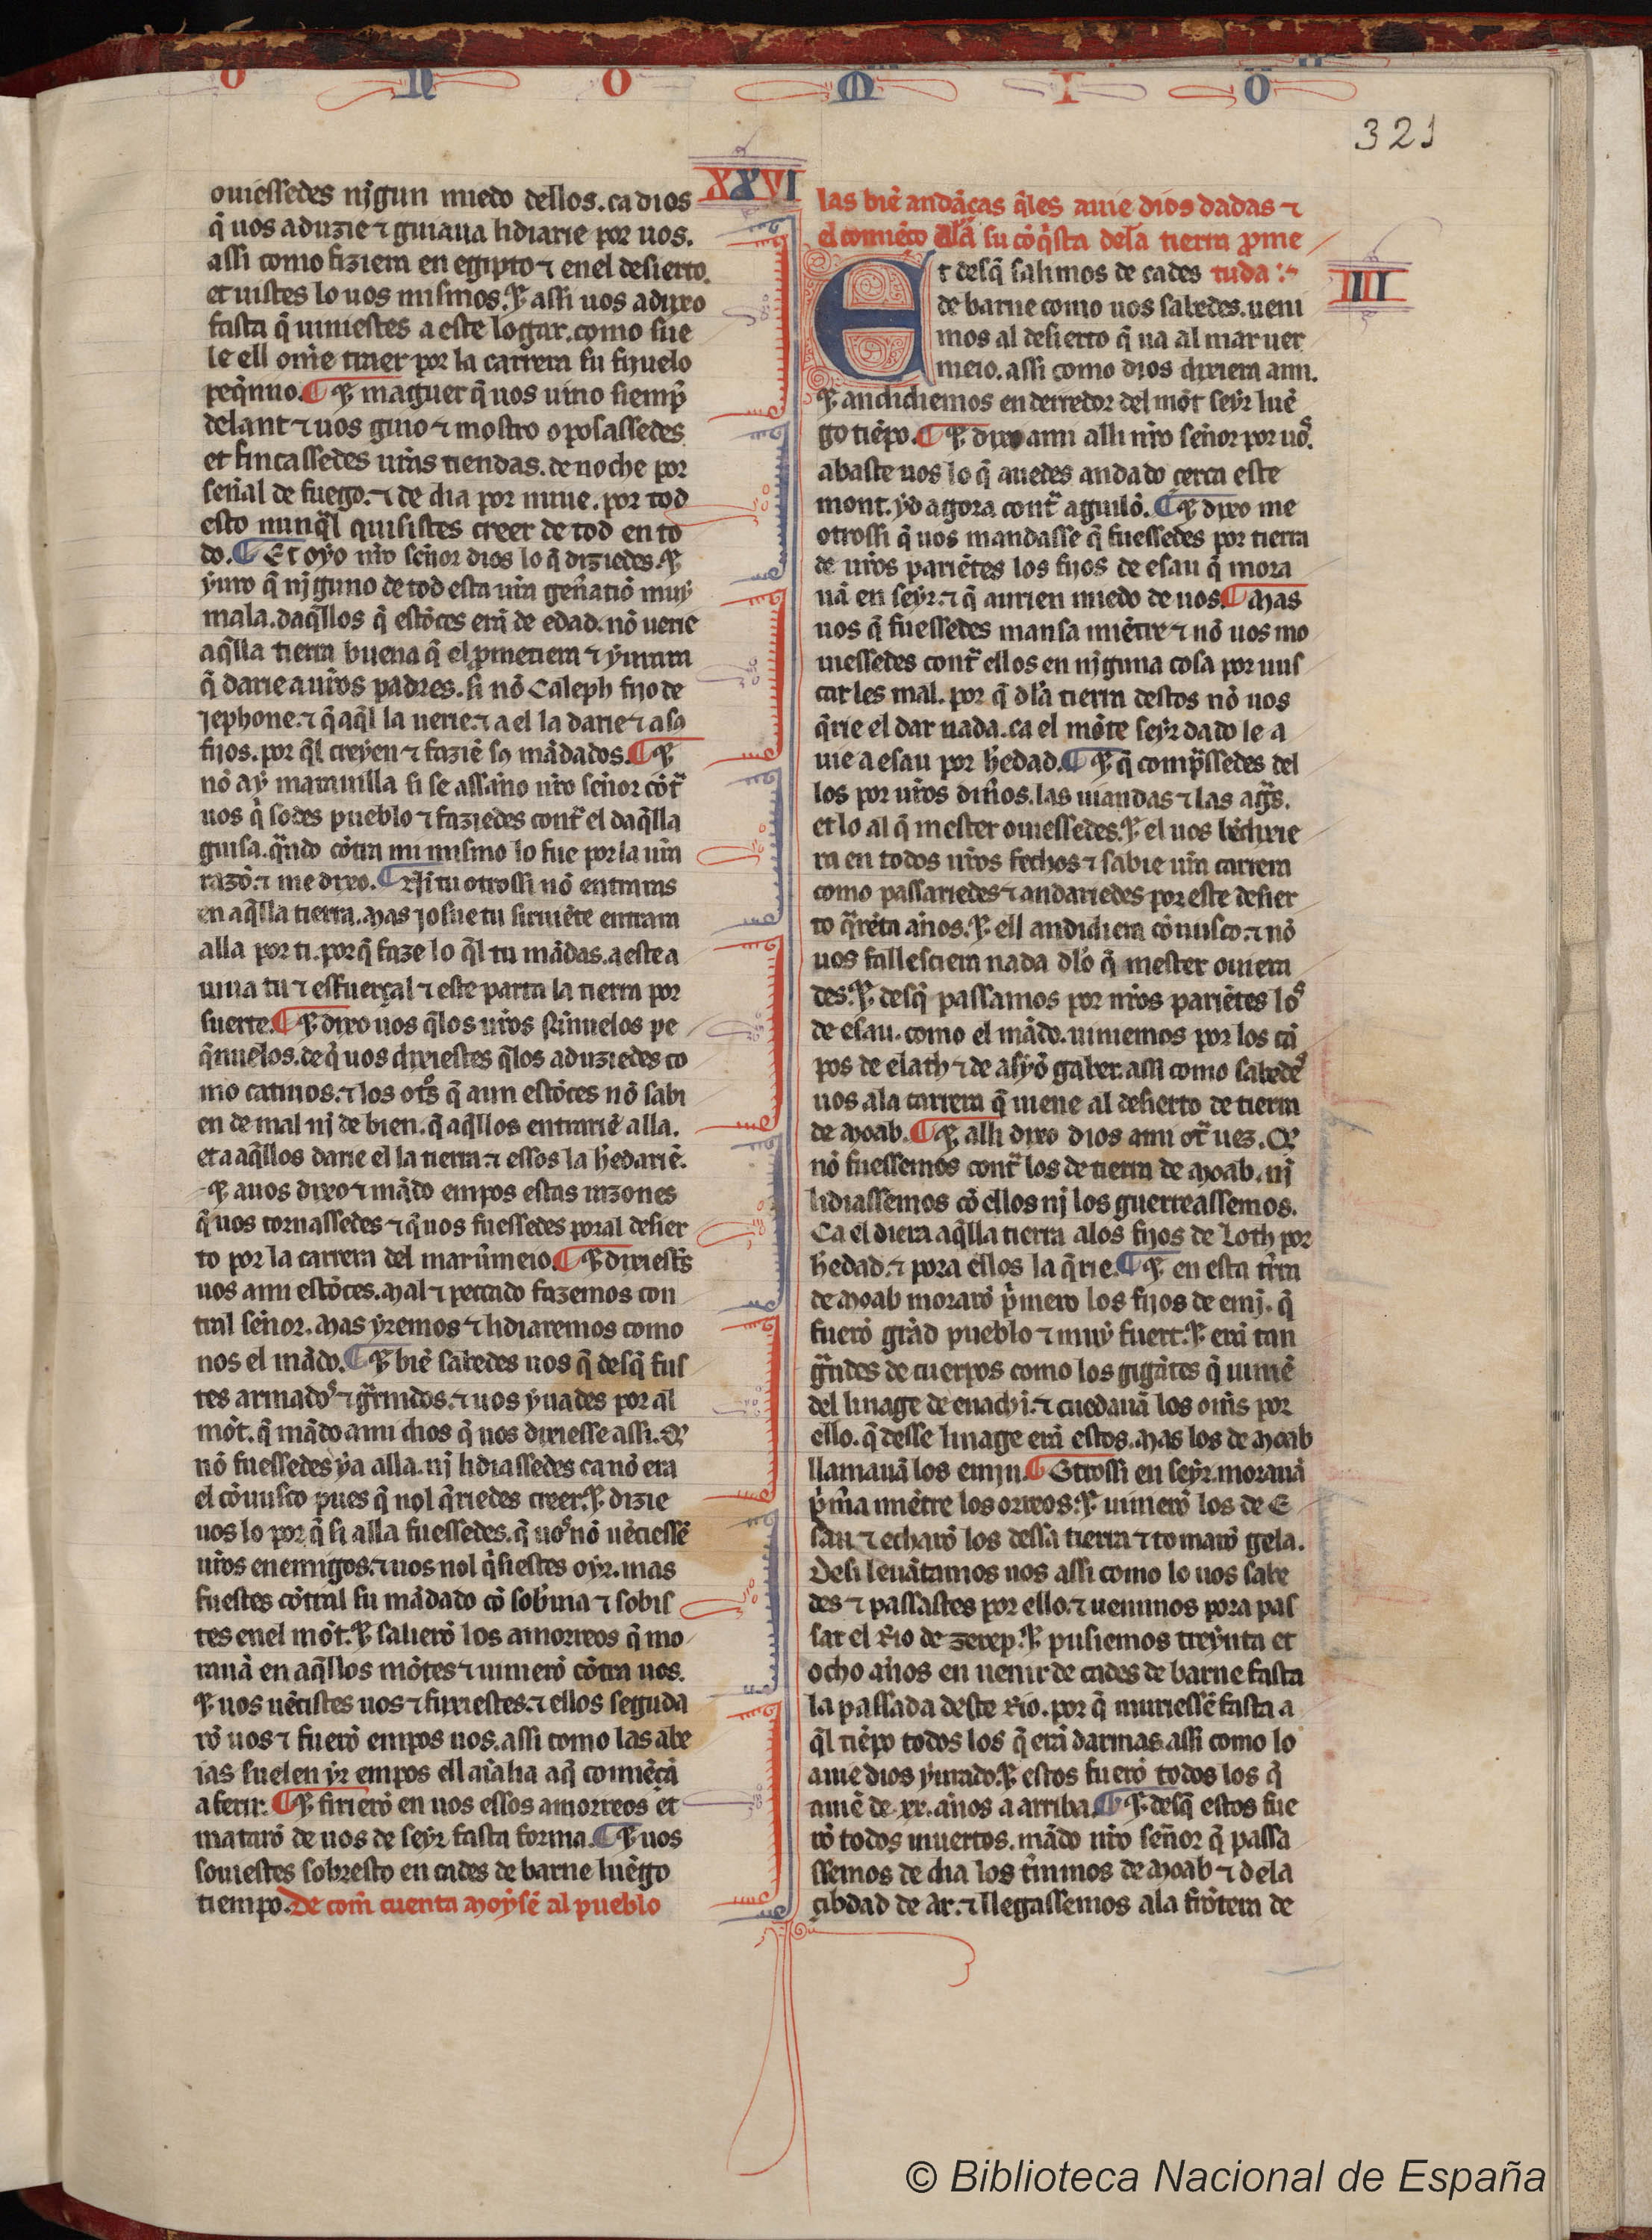 O N O M I O
321
XXVI
ouiessedes nịgun miedo dellos. ca dios
q̃ uos aduzie ⁊ guiaua lidiarie por uos.
assi como fiziera en egipto ⁊ enel desierto.
et uistes lo uos mismos. ⁊ assi uos aduxo
fasta q̃ uiniestes a este logar. como sue
le ell om̃e traer por la carrera su fijuelo
peq̃nno. ¶ ⁊ maguer q̃ uos uino siemp̃
delant ⁊ uos guio ⁊ mostro o posassedes
et fincassedes ur̃as tiendas. de noche por
sen̄al de fuego. ⁊ de dia por nuue. por tod
esto nunq̃l quisistes creer de tod en to
do. ¶ Et oyo nr̃o sen̄or dios lo q̃ diziedes. ⁊
yuro q̃ nịguno de tod esta ur̃a gen̄atiō muy
mala. daq̃llos q̃ estōces erā de edad. nō uerie
aq̃lla tierra buena q̃ el ꝓmetiera ⁊ yurara
q̃ darie a ur̃os padres. si nō Caleph fijo de
Jephone. ⁊ q̃ aq̃l la uerie. ⁊ a el la darie ⁊ a so
fijos. por q̃l creyen ⁊ faziē so mādados. ¶ ⁊
nō ay marauilla si se assan̄o nr̃o sen̄or cōt̃
uos q̃ sodes pueblo ⁊ faziedes cont̃ el daq̃lla
guisa. q̃ndo cōtra mi mismo lo fue por la ur̃a
razō. ⁊ me dixo. ¶ Ni tu otrossi nō entraras
en aq̃lla tierra. Mas Josue tu siruiēte entrara
alla por ti. por q̃ faze lo q̃l tu mādas. a este a
uiua tu ⁊ esfuerçal ⁊ este parta la tierra por
suerte. ¶ ⁊ dixo uos q̃ los ur̃os fijuelos pe
q̃nuelos. de q̃ uos dixiestes q̃ los aduziedes co
mo catiuos. ⁊ los ot̃s q̃ aun estōces nō sabi
en de mal nị de bien. q̃ aq̃llos entrariē alla.
et a aq̃llos darie el la tierra. ⁊ essos la h̃edariē.
⁊ a uos dixo ⁊ mādo empos estas razones
q̃ uos tornassedes ⁊ q̃ uos fuessedes poral desier
to por la carrera del mar ũmeio. ¶ ⁊ dixiest̃s
uos a mi estōces. Mal ⁊ peccado fazemos con
tral sen̄or. Mas yremos ⁊ lidiaremos como
nos el mādo. ¶ ⁊ biē sabedes uos q̃ desq̃ fus
tes armados ⁊ g̃rnidos. ⁊ uos yuades por al
mōt. q̃ mādo a mi dios q̃ uos dixiesse assi. Q̃
nō fuessedes ya alla. nị lidiassedes ca nō era
el cōuusco pues q̃ nol q̃riedes creer. ⁊ dizie
uos lo por q̃ si alla fuessedes. q̃ uos nō uēciessē
ur̃os enemigos. ⁊ uos nol q̃siestes oyr. mas
fuestes cōtral su mādado cō sob̃uia ⁊ sobis
tes enel mōt. ⁊ salierō los amorreos q̃ mo
rauā en aq̃llos mōtes ⁊ uinierō cōtra uos.
⁊ uos uēcistes uos ⁊ fuxiestes. ⁊ ellos seguda
rō uos ⁊ fuerō empos uos. assi como las abe
ias suelen yr empos ell aīalia a q̃ comiēçā
a ferir. ¶ ⁊ firierō en uos essos amorreos et
matarō de uos de seyr fasta forma. ¶ ⁊ uos
souiestes sobresto en cades de barne luēgo
tiempo. De com̃ cuenta Moysē al pueblo
las biē andāças q̃ les auie dios dadas ⁊
el comiēço dela su cōq̃sta dela tierra ꝓme
Et desq̃ salimos de cades tuda
IIII
de barne como uos sabedes. ueni
mos al desierto q̃ ua al mar uer
meio. assi como dios dixiera a mi.
⁊ andidiemos en derredor del mōt seyr luē
go tiēpo. ¶ ⁊ dixo a mi alli nr̃o sen̄or por uos.
abaste uos lo q̃ auedes andado çerca este
mont. yd agora cont̃ aguilō. ¶ ⁊ dixo me
otrossi q̃ uos mandasse q̃ fuessedes por tierra
de ur̃os pariētes los fijos de esau q̃ mora
uā en seyr. ⁊ q̃ aurien miedo de uos. ¶ Mas
uos q̃ fuessedes mansa miētre ⁊ nō uos mo
uiessedes cont̃ ellos en nịguna cosa por bus
car les mal. por q̃ dla tierra destos nō uos
q̃rie el dar nada. ca el mōte seyr dado le a
uie a esau por h̃edad. ¶ ⁊ q̃ comp̃ssedes del
los por ur̃os din̄os. las uiandas ⁊ las ag̃s.
et lo al q̃ mester ouiessedes. ⁊ el uos bēdixie
ra en todos ur̃os fechos ⁊ sabie ur̃a carrera
como passariedes ⁊ andariedes por este desier
to q̃rēta an̄os. ⁊ ell andidiera cōuusco. ⁊ nō
uos fallesciera nada dlo q̃ mester ouiera
des. ⁊ desq̃ passamos por nr̃os pariētes los
de esau. como el mādo. uiniemos por los cā
pos de elath ⁊ de asyō gaber. assi como sabedes
uos a la carrera q̃ uiene al desierto de tierra
de Moab. ¶ ⁊ alli dixo dios a mi ot̃ uez. Q̃
nō fuessemos cont̃ los de tierra de Moab. nị
lidiassemos cō ellos nị los guerreassemos.
Ca el diera aq̃lla tierra alos fijos de Loth por
h̃edad. ⁊ pora ellos la q̃rie. ¶ ⁊ en esta tr̃ra
de Moab morarō p̃mero los fijos de emị. q̃
fuerō grād pueblo ⁊ muy fuert. ⁊ erā tan
g̃ndes de cuerpos como los gigātes q̃ uiniē
del linage de enachị. ⁊ cuedauā los om̃s por
ello. q̃ desse linage erā estos. Mas los de Moab
llamauā los emịn. ¶ Otrossi en seyr. morauā
p̃m̃a miētre los orreos. ⁊ uinierō los de E
sau ⁊ echarō los dessa tierra ⁊ tomarō gela.
Desi leuātamos nos assi como lo uos sabe
des ⁊ passastes por ello. ⁊ uenimos pora pas
sar el Rio de zerep. ⁊ pusiemos treynta et
ocho an̄os en uenir de cades de barne fasta
la passada deste Rio. por q̃ muriessē fasta a
q̃l tiēpo todos los q̃ erā darmas assi como lo
auie dios yurado. ⁊ estos fuerō todos los q̃
auiē de .xx. an̄os a arriba. ¶ ⁊ desq̃ estos fue
rō todos muertos. mādo nr̃o sen̄or q̃ passa
ssemos de dia los t̃minos de Moab ⁊ dela
çibdad de Ar. ⁊ llegassemos ala frōtera de
© Biblioteca Nacional de España